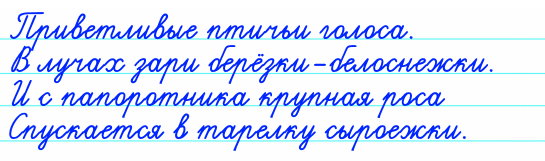 Приветливые птичьи голоса.
В лучах зари берёзки-белоснежки.
И с папоротника крупная роса
Спускается в тарелку сыроежки.